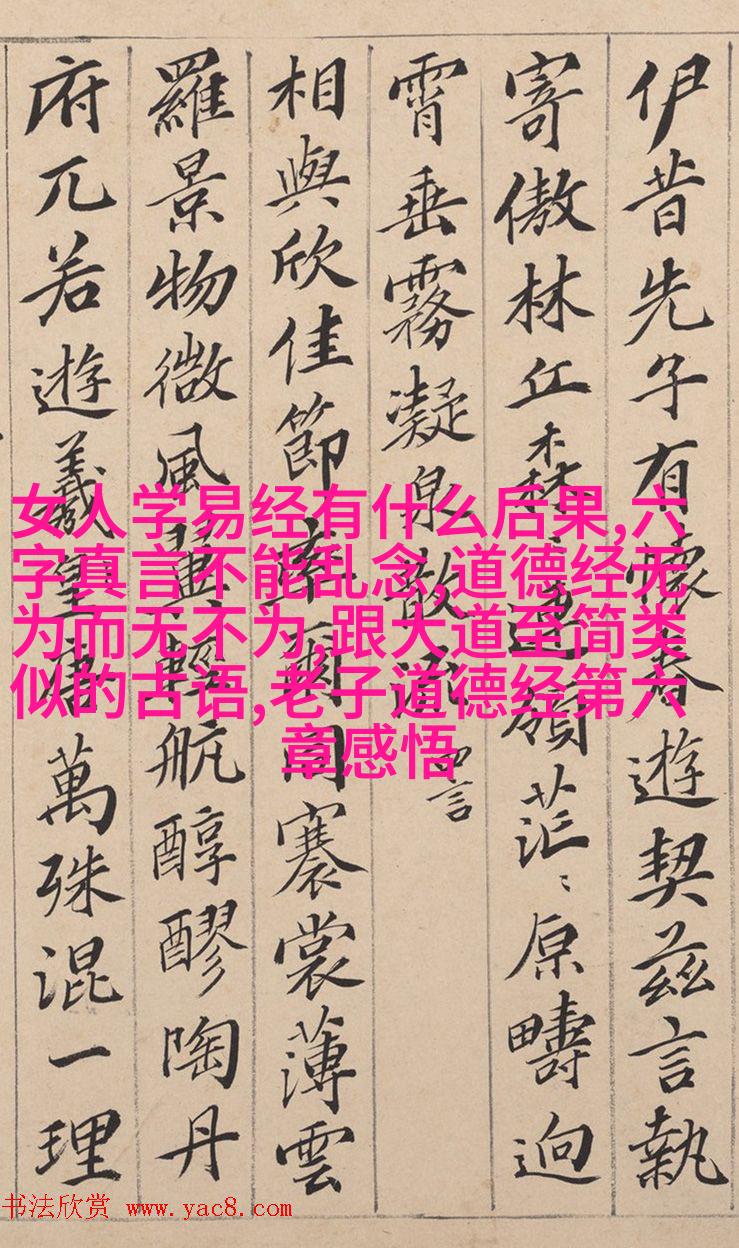 伊昔先子有懷春遊契茲言執
寄傲林丘森〻連嶺茫〻原疇迥
霄垂霧凝泉散流 四言
相與欣佳節率爾同褰裳薄雲
羅景物微風翼輕航醇醪陶丹
府兀若遊羲皇唐萬殊混一理
女人学易经有什么后果,六
字真言不能乱念,道德经无
为而无不为,跟大道至简类
似的古语,老子道德经第六
章感悟
书法欣赏 www.yac8.com